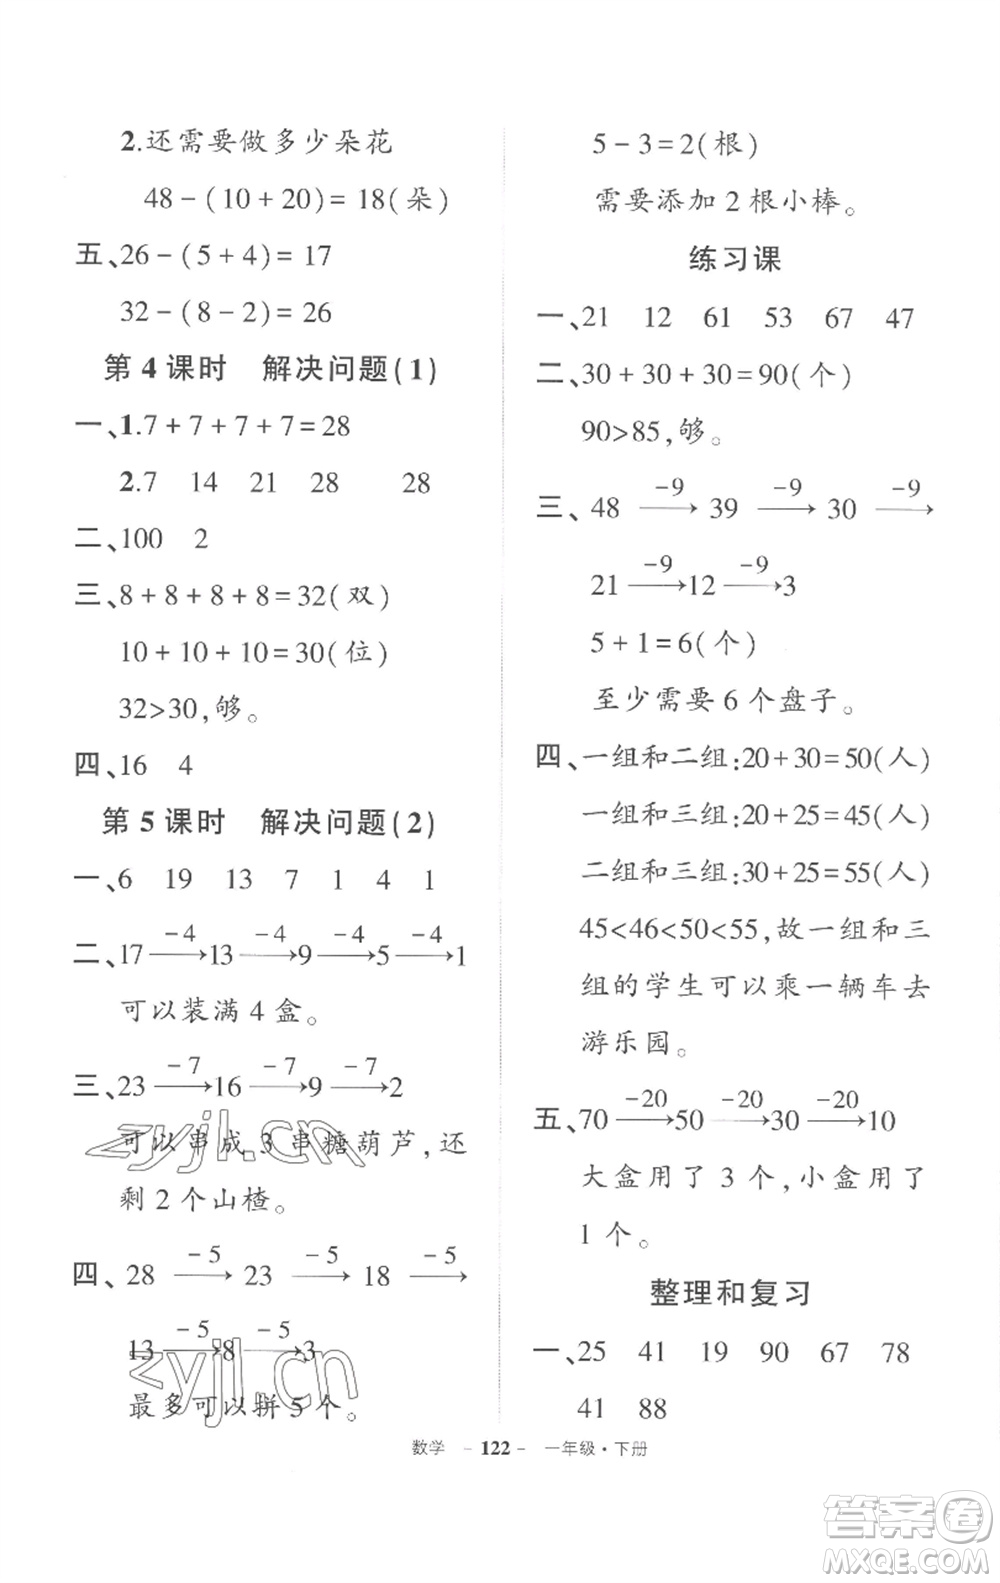 2.还需要做多少朵花
48-(10+20)=18(朵)
五、26-(5+4)=17
32-(8-2)=26
第4课时 解决问题(1)
一、1.7+7+7+7=28
2.7 14 21 28 28
二、100 2
三、8+8+8+8=32(双)
10+10+10=30(位)
32>30,够。
四、16 4
第5课时 解决问题(2)
一、6 19 13 7 1 4 1
-4 -4 -4 -4
二、17→13→9→5→1
可以装满4盒。
-7 -7 -7
三、23→16→9→2
可以串成3串糖葫芦,还
剩2个山楂。
-5 -5 -5
四、28→23→18→
-5 -5
13→8→3
最多可以拼5个。
5-3=2(根)
需要添加2根小棒。
练习课
一、21 12 61 53 67 47
二、30+30+30=90(个)
90>85,够。
-9 -9 -9
三、48→39→30→
-9 -9
21→12→3
5+1=6(个)
至少需要6个盘子。
四、一组和二组:20+30=50(人)
一组和三组:20+25=45(人)
二组和三组:30+25=55(人)
45<46<50<55,故一组和三
组的学生可以乘一辆车去
游乐园。
-20 -20 -20
五、70→50→30→10
大盒用了3个,小盒用了
1个。
整理和复习
一、25 41 19 90 67 78
41 88
数学 -122- 一年级·下册
zyjl.cn
zyjl.cn
答案圈
MXQE.COM